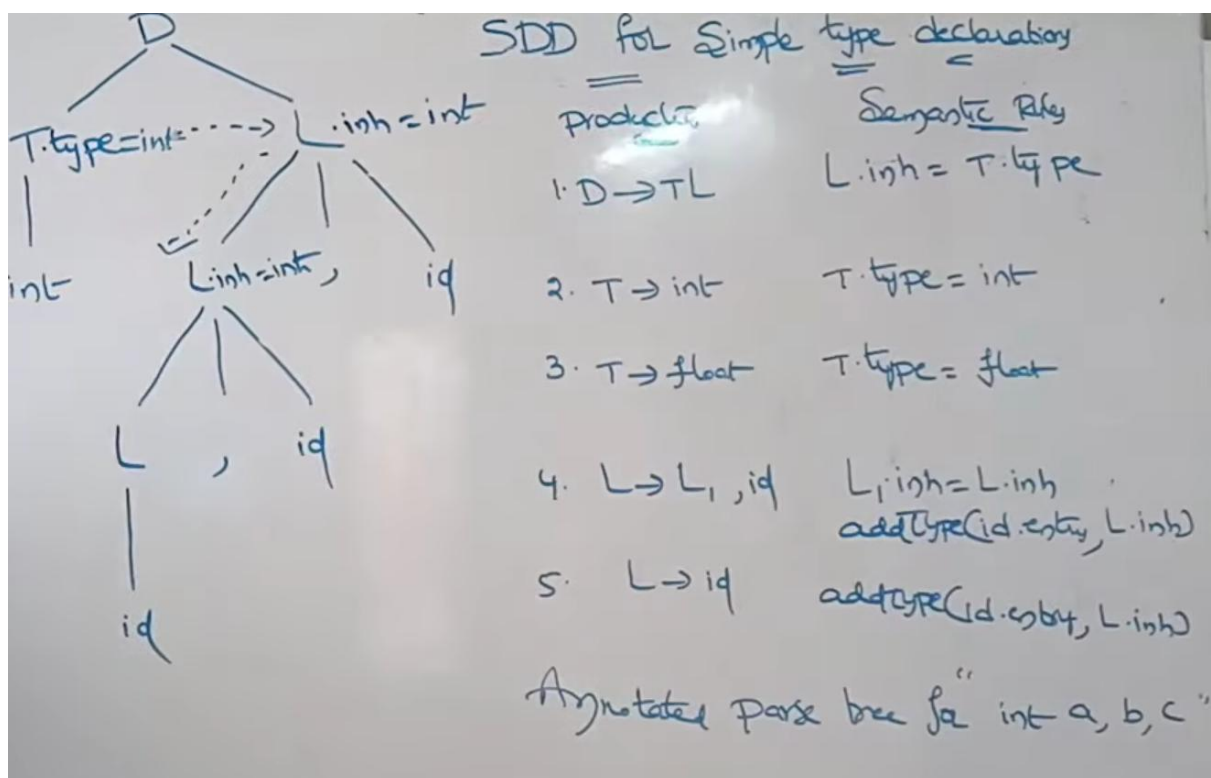 D
T.type=int
L.inh=int
int
L.inh=int,
id
L
,
id
id
SDD for Simple type declaration
Production
Semantic Rules
1. D→TL
L.inh = T.type
2. T→int
T.type = int
3. T→float
T.type = float
4. L→L₁,id
L₁.inh=L.inh
addType(id.entry, L.inh)
5. L→id
addtype(id.entry, L.inh)
Annotated parse tree for "int a, b, c"